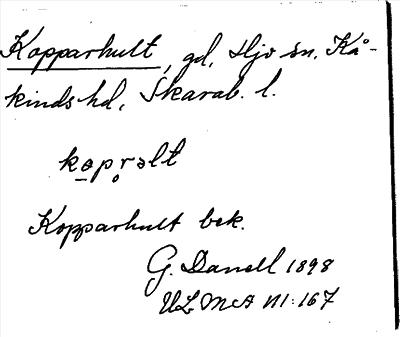 Kopparhult, gd, Hjo sn, Kå-
kinds hd, Skarab. l.
kəpr̥əlt
Kopparhult bek.
G. Danell 1898
ULMA 111:167